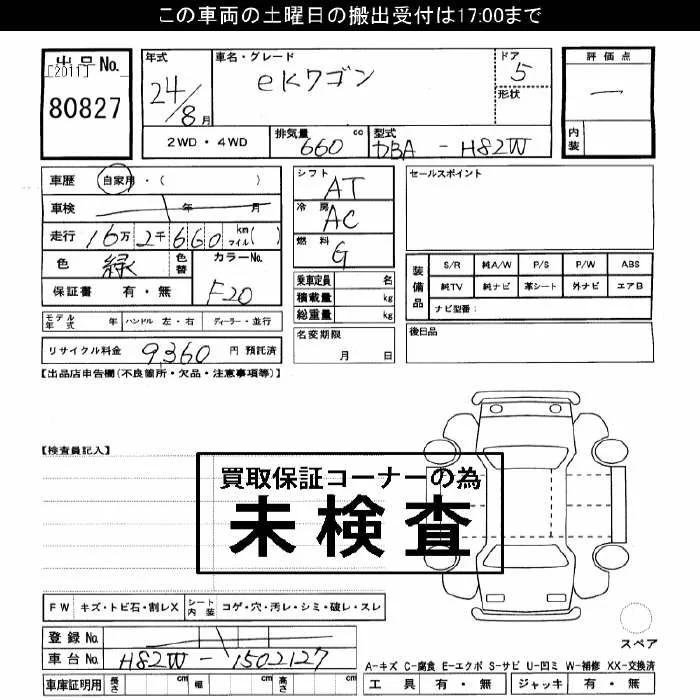 この車両の土曜日の搬出受付は17:00まで
出品No.
[2011]
80827
年式
24/8月
車名・グレード
eKワゴン
ドア
5
形状
評価点
一
内装
2WD・4WD
排気量
660 cc
型式
DBA - H82W
車歴 自家用・( )
車検 年 月
走行 16万2千660 km マイル( )
色 緑 色替
カラーNo.
F20
保証書 有・無
モデル年式 年 ハンドル 左・右 ディーラー・並行
リサイクル料金 9,360 円 預託済
シフト
AT
冷房
AC
燃料
G
乗車定員 名
積載量 kg
総重量 kg
名変期限
月 日
セールスポイント
装備品
S/R 純A/W P/S P/W ABS
純TV 純ナビ 革シート 外ナビ エアB
ナビ型番:
後日品
【出品店申告欄(不良箇所・欠品・注意事項等)】
【検査員記入】
買取保証コーナーの為
未検査
FW キズ・トビ石・割レX シート内装 コゲ・穴・汚レ・シミ・破レ・スレ
登録No.
車台No. H82W - 1502127
車庫証明用 長さ cm 幅 cm 高さ cm
スペア
A-キズ C-腐食 E-エクボ S-サビ U-凹ミ W-補修 XX-交換済
工具 有・無 ジャッキ 有・無